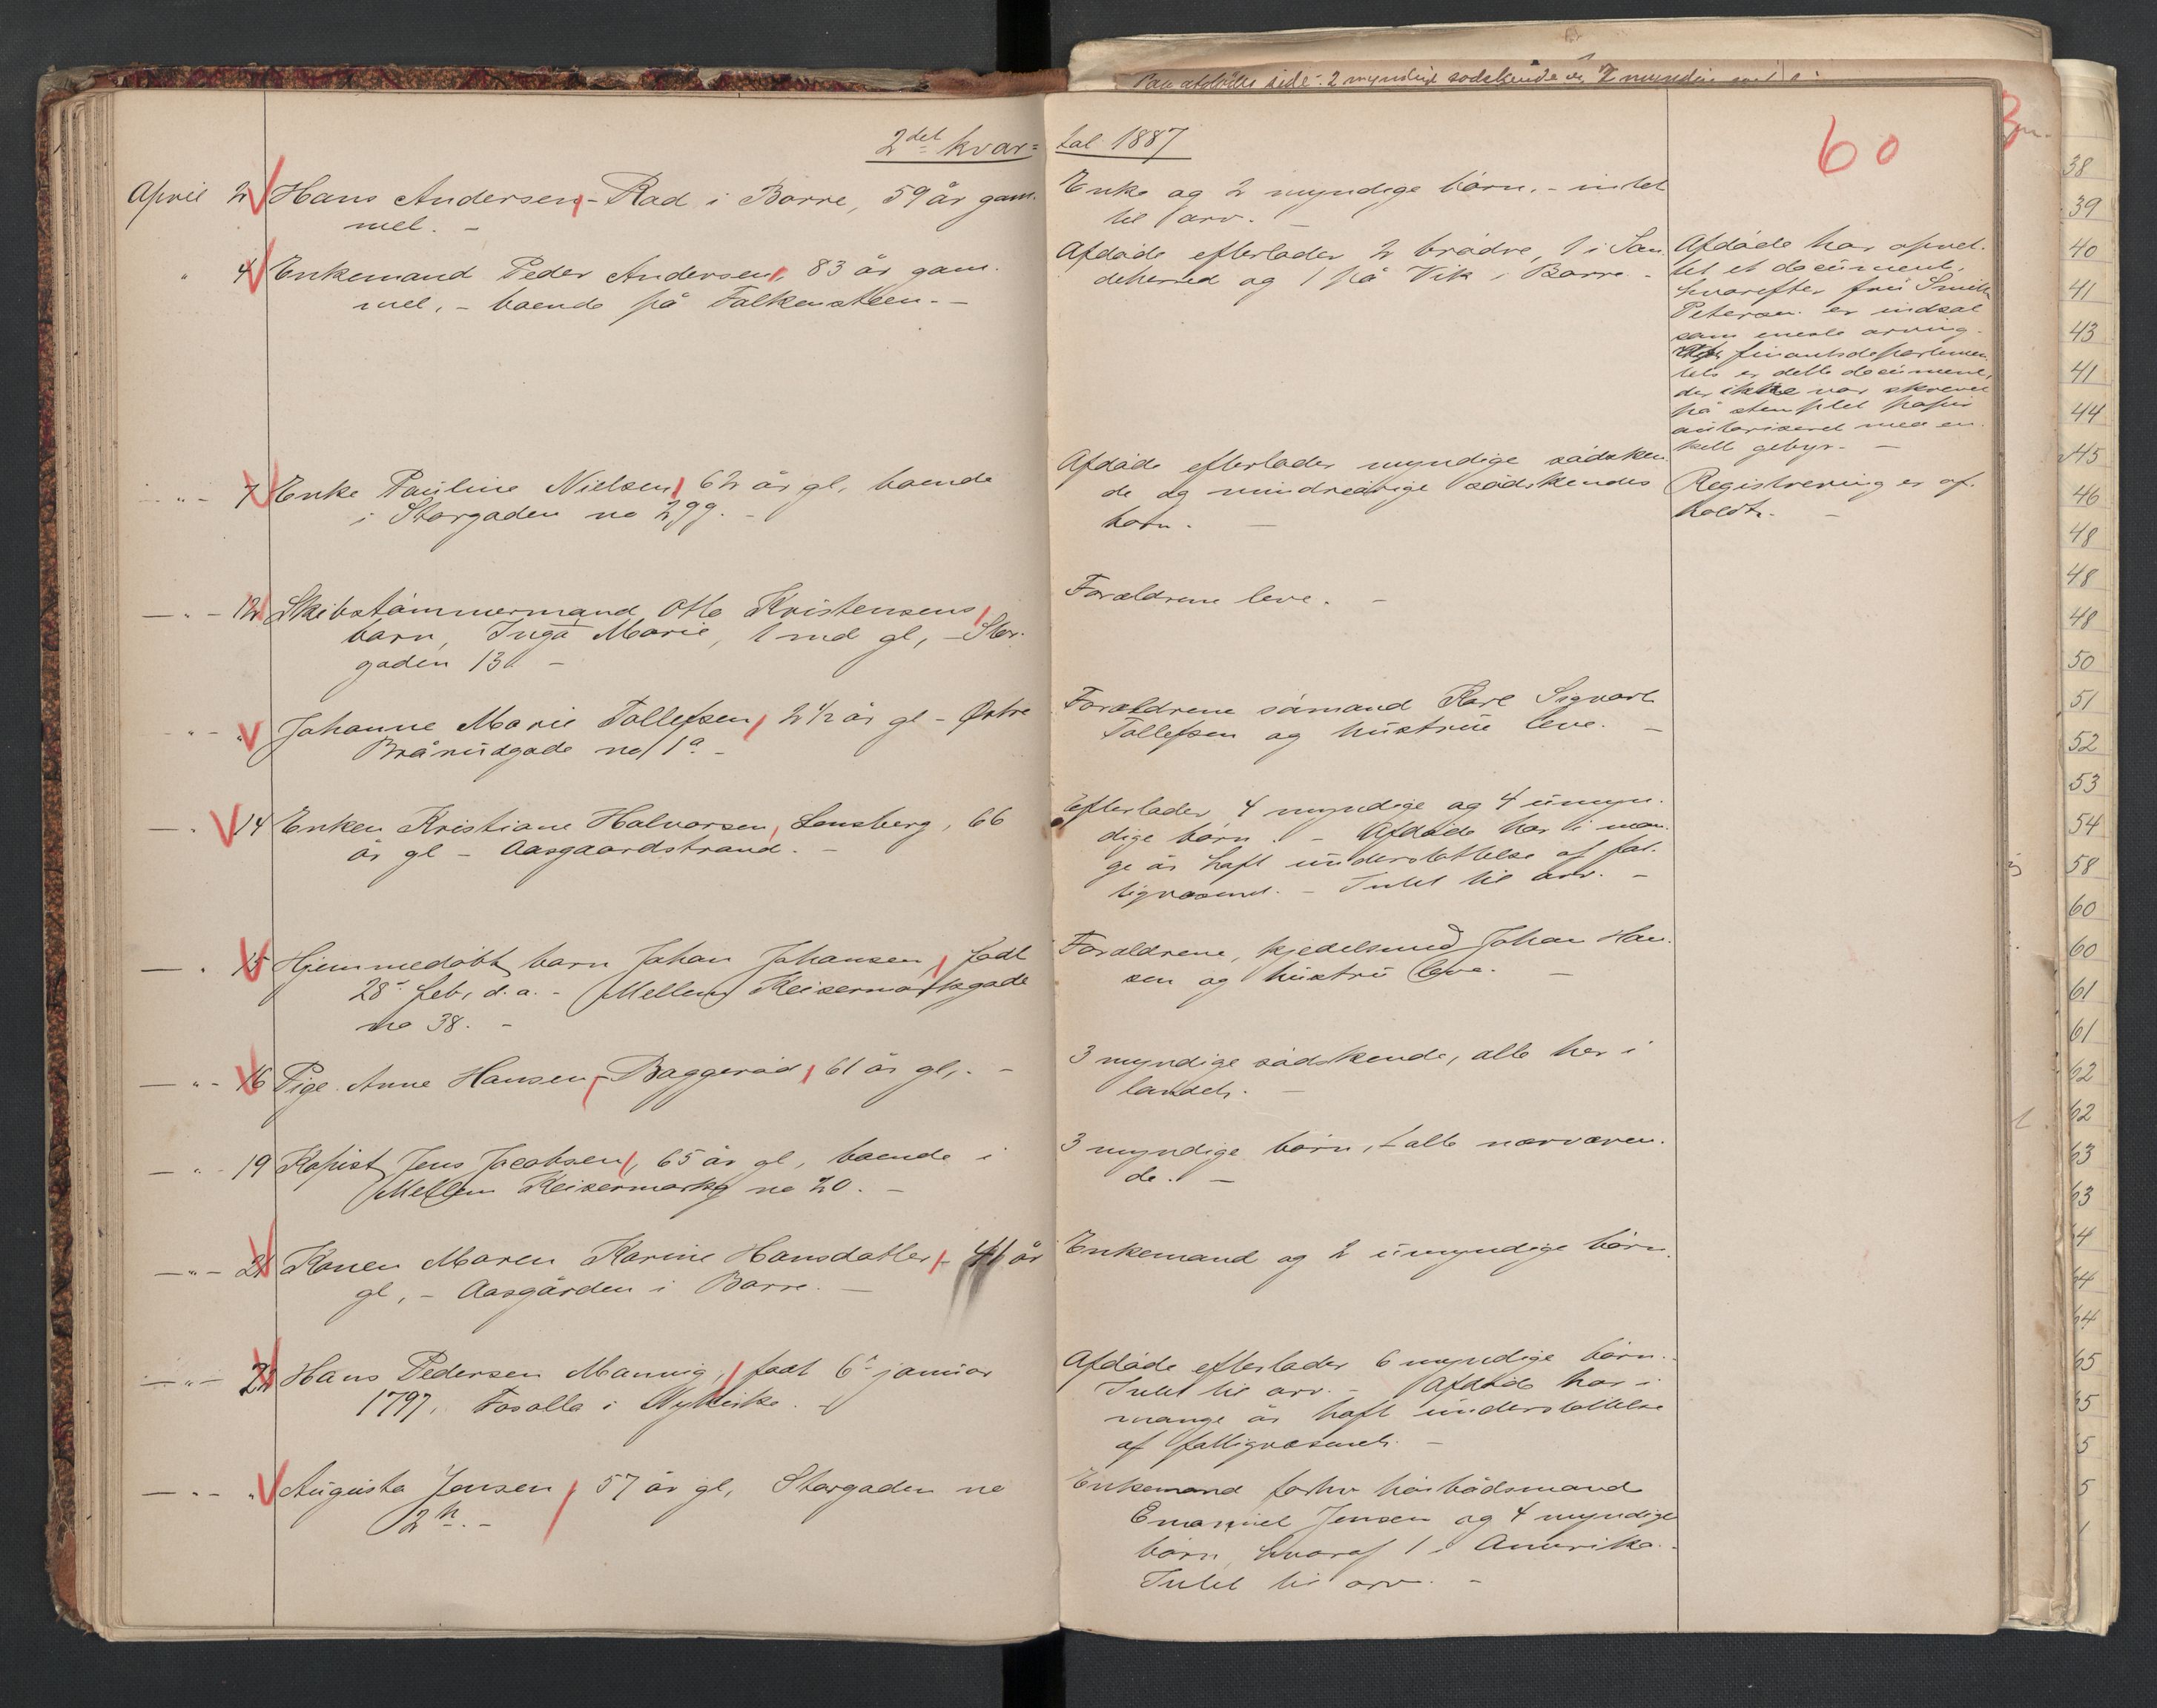 På afdødes side: 2 myndige sødskende og 2
2det kvar=
tal 1887
60
April 2 Hans Andersen, - Rød i Borre, 59 år gam-
mel. -
Enke og 2 myndige børn. - intet
til arv. -
" 4 Enkemand Peder Andersen, 83 år gam-
mel, - boende på Falkensteen. -
Afdøde efterlader 2 brødre, 1 i San-
deherred og 1 på Vik i Borre. -
Afdøde har opret-
tet et document,
hvorefter frü Smith
Petersen er indsat
som eneste arving.
finantsdepartemen-
tets er dette document,
der ikke var skrevet
på stemplet papir
autoriseret med en-
kelt gebyr. -
- " - 7 Enke Pauline Nielsen, 62 år gl, boende
i Storgaden no 299. -
Afdøde efterlader myndige sødsken-
de og mindreårige sødskendes
børn. -
Registrering er af-
holdt. -
- " - 12 Skibstømmermand Otto Kristensens
barn, Inga Marie, 1 md gl, - Stor-
gaden 13. -
Forældrene leve. -
- " - " Johanne Marie Tollefsen, 2 1/2 år gl - Østre
Brårüdgade no 1a -
Forældrene sømand Karl Sigvart
Tollefsen og hüstrüe leve. -
- " 14 Enken Kristiane Halvorsen, Lensberg, 66
år gl - Aasgaardstrand. -
Efterlader 4 myndige og 4 ümyn-
dige børn. - Afdøde har i man-
ge år haft ünderstøttelse af fat-
tigvæsenet. - Intet til arv. -
- " 15 Hjemmedøbt barn Johan Johansen, født
28de feb. d. a. - Mellem Keisermarksgade
no 38. -
Forældrene, kjedelsmed Johan Han-
sen og hüstrü leve. -
- " - 16 Pige Anne Hansen, - Baggerød, 61 år gl, -
3 myndige sødskende, alle her i
landet. -
- " - 19 Kopist Jens Jacobsen, 65 år gl, boende i
Mellem Keisermarksg no 20. -
3 myndige børn, alle nærværen-
de. -
- " - 21 Konen Maren Karine Hansdatter, - 41 år
gl, - Aasgården i Borre. -
Enkemand og 2 ümyndige børn.
- " - 22 Hans Pedersen Mannig, født 6te janüar
1797, Fosolla i Nykirke. -
Afdøde efterlader 6 myndige børn. -
Intet til arv. - Afdøde har i
mange år haft ünderstøttelse
af fattigvæsenet. -
- " - " Augüsta Jensen, 57 år gl, Storgaden no
2h. -
Enkemand forhv havbådsmand
Emanuel Jensen og 4 myndige
børn, hvoraf 1 i Amerika. -
Intet til arv. -
38
39
40
41
43
41
44
45
46
48
48
48
50
51
52
53
54
58
60
60
61
61
62
62
63
63
64
64
64
65
65
5
5
1